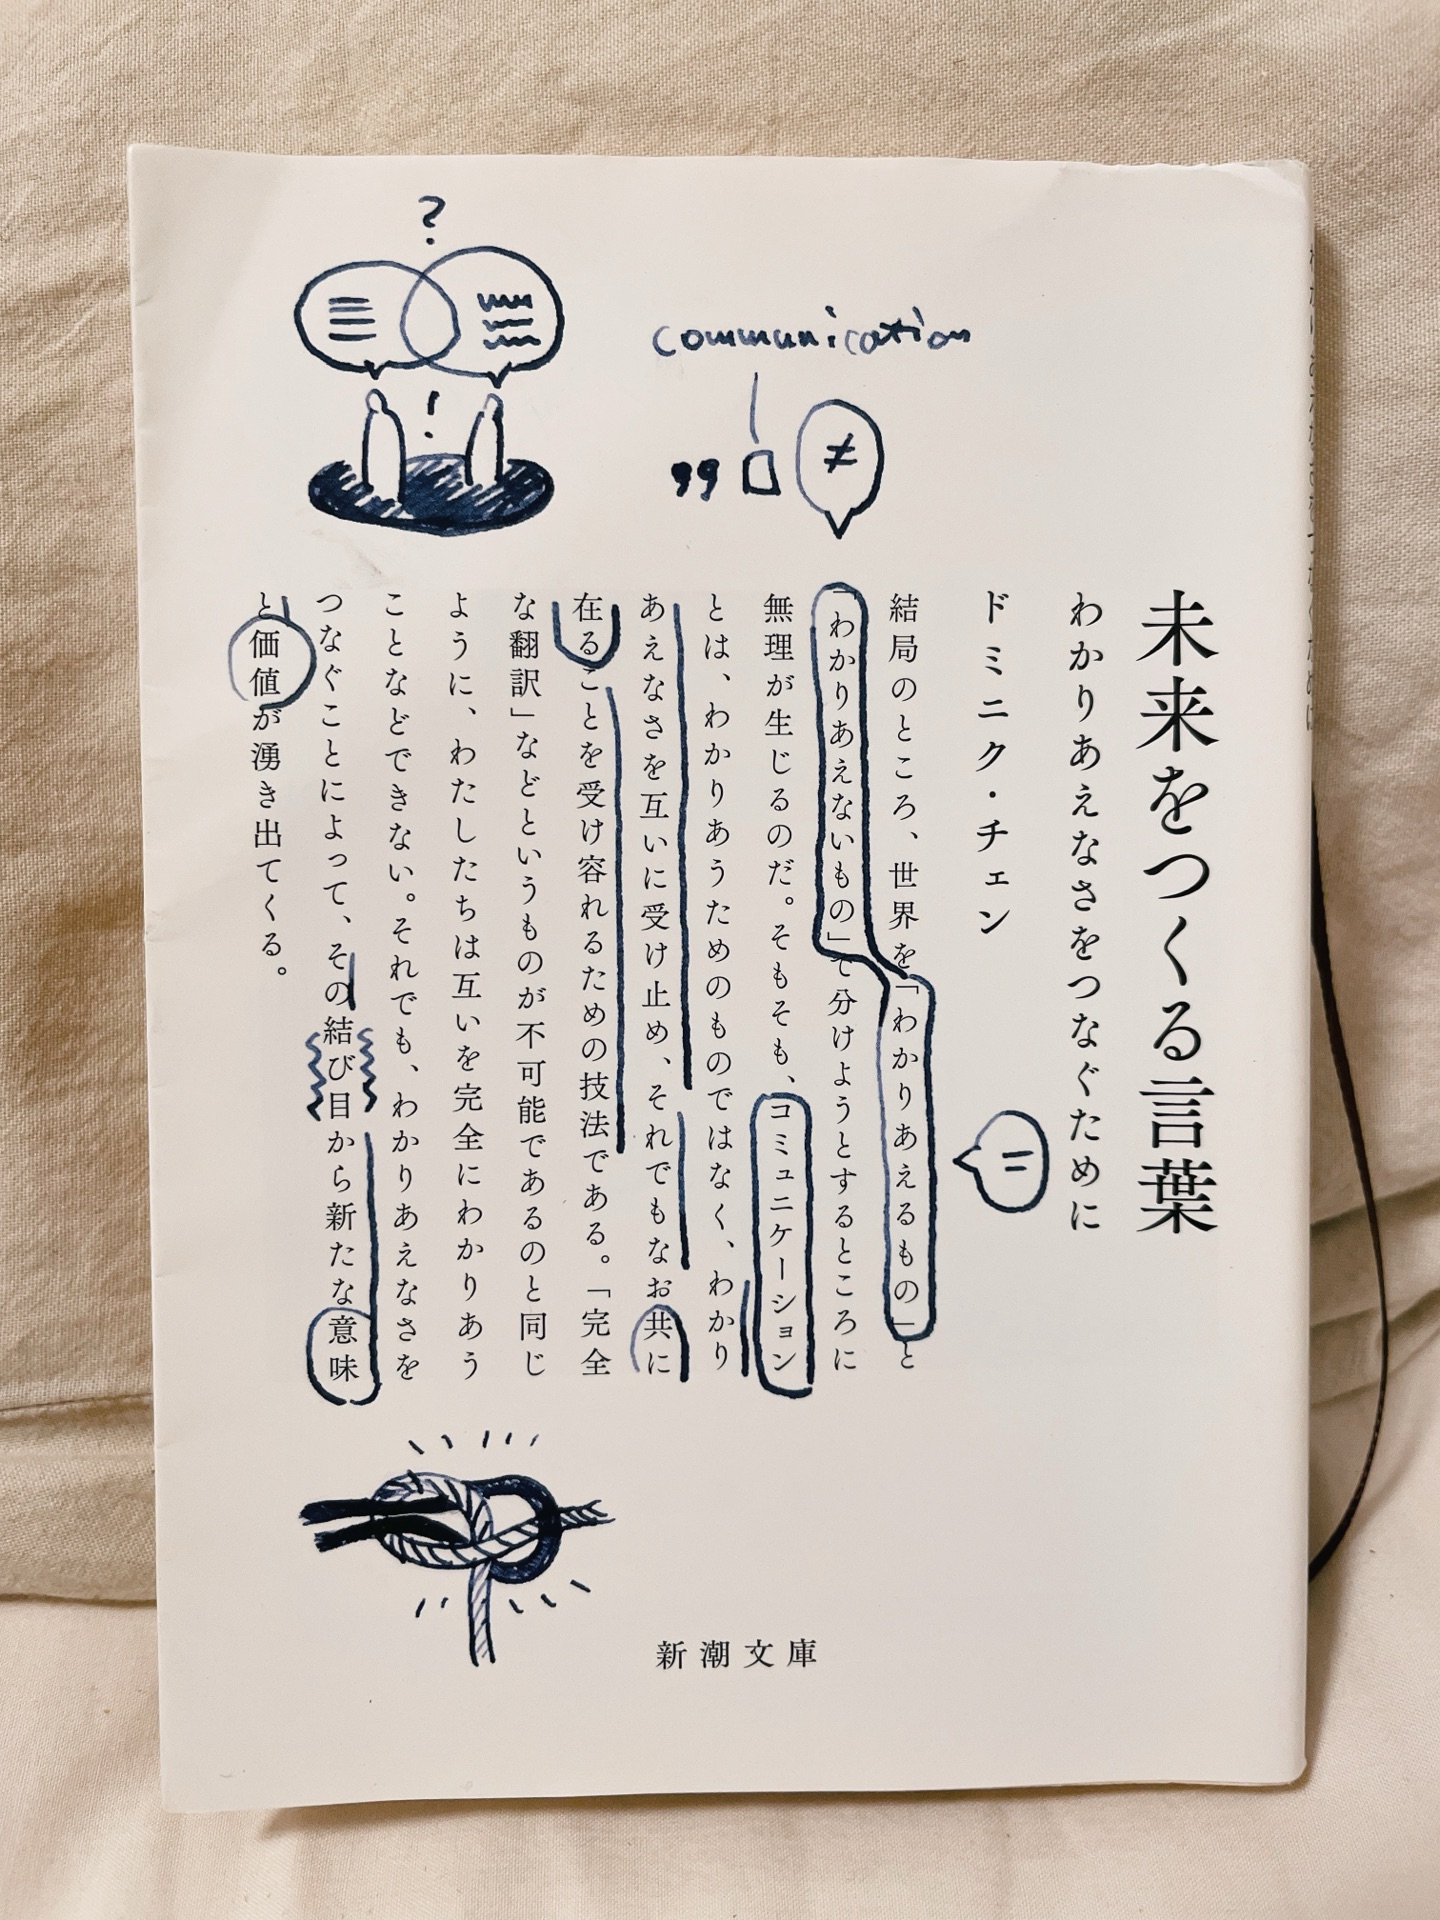 未来をつくる言葉
わかりあえなさをつなぐために
ドミニク・チェン
結局のところ、世界を「わかりあえるもの」と
「わかりあえないもの」で分けようとするところに
無理が生じるのだ。そもそも、コミュニケーション
とは、わかりあうためのものではなく、わかり
あえなさを互いに受け止め、それでもなお共に
在ることを受け容れるための技法である。「完全
な翻訳」などというものが不可能であるのと同じ
ように、わたしたちは互いを完全にわかりあう
ことなどできない。それでも、わかりあえなさを
つなぐことによって、その結び目から新たな意味
と価値が湧き出てくる。
=
communication
≠
?
!
新潮文庫